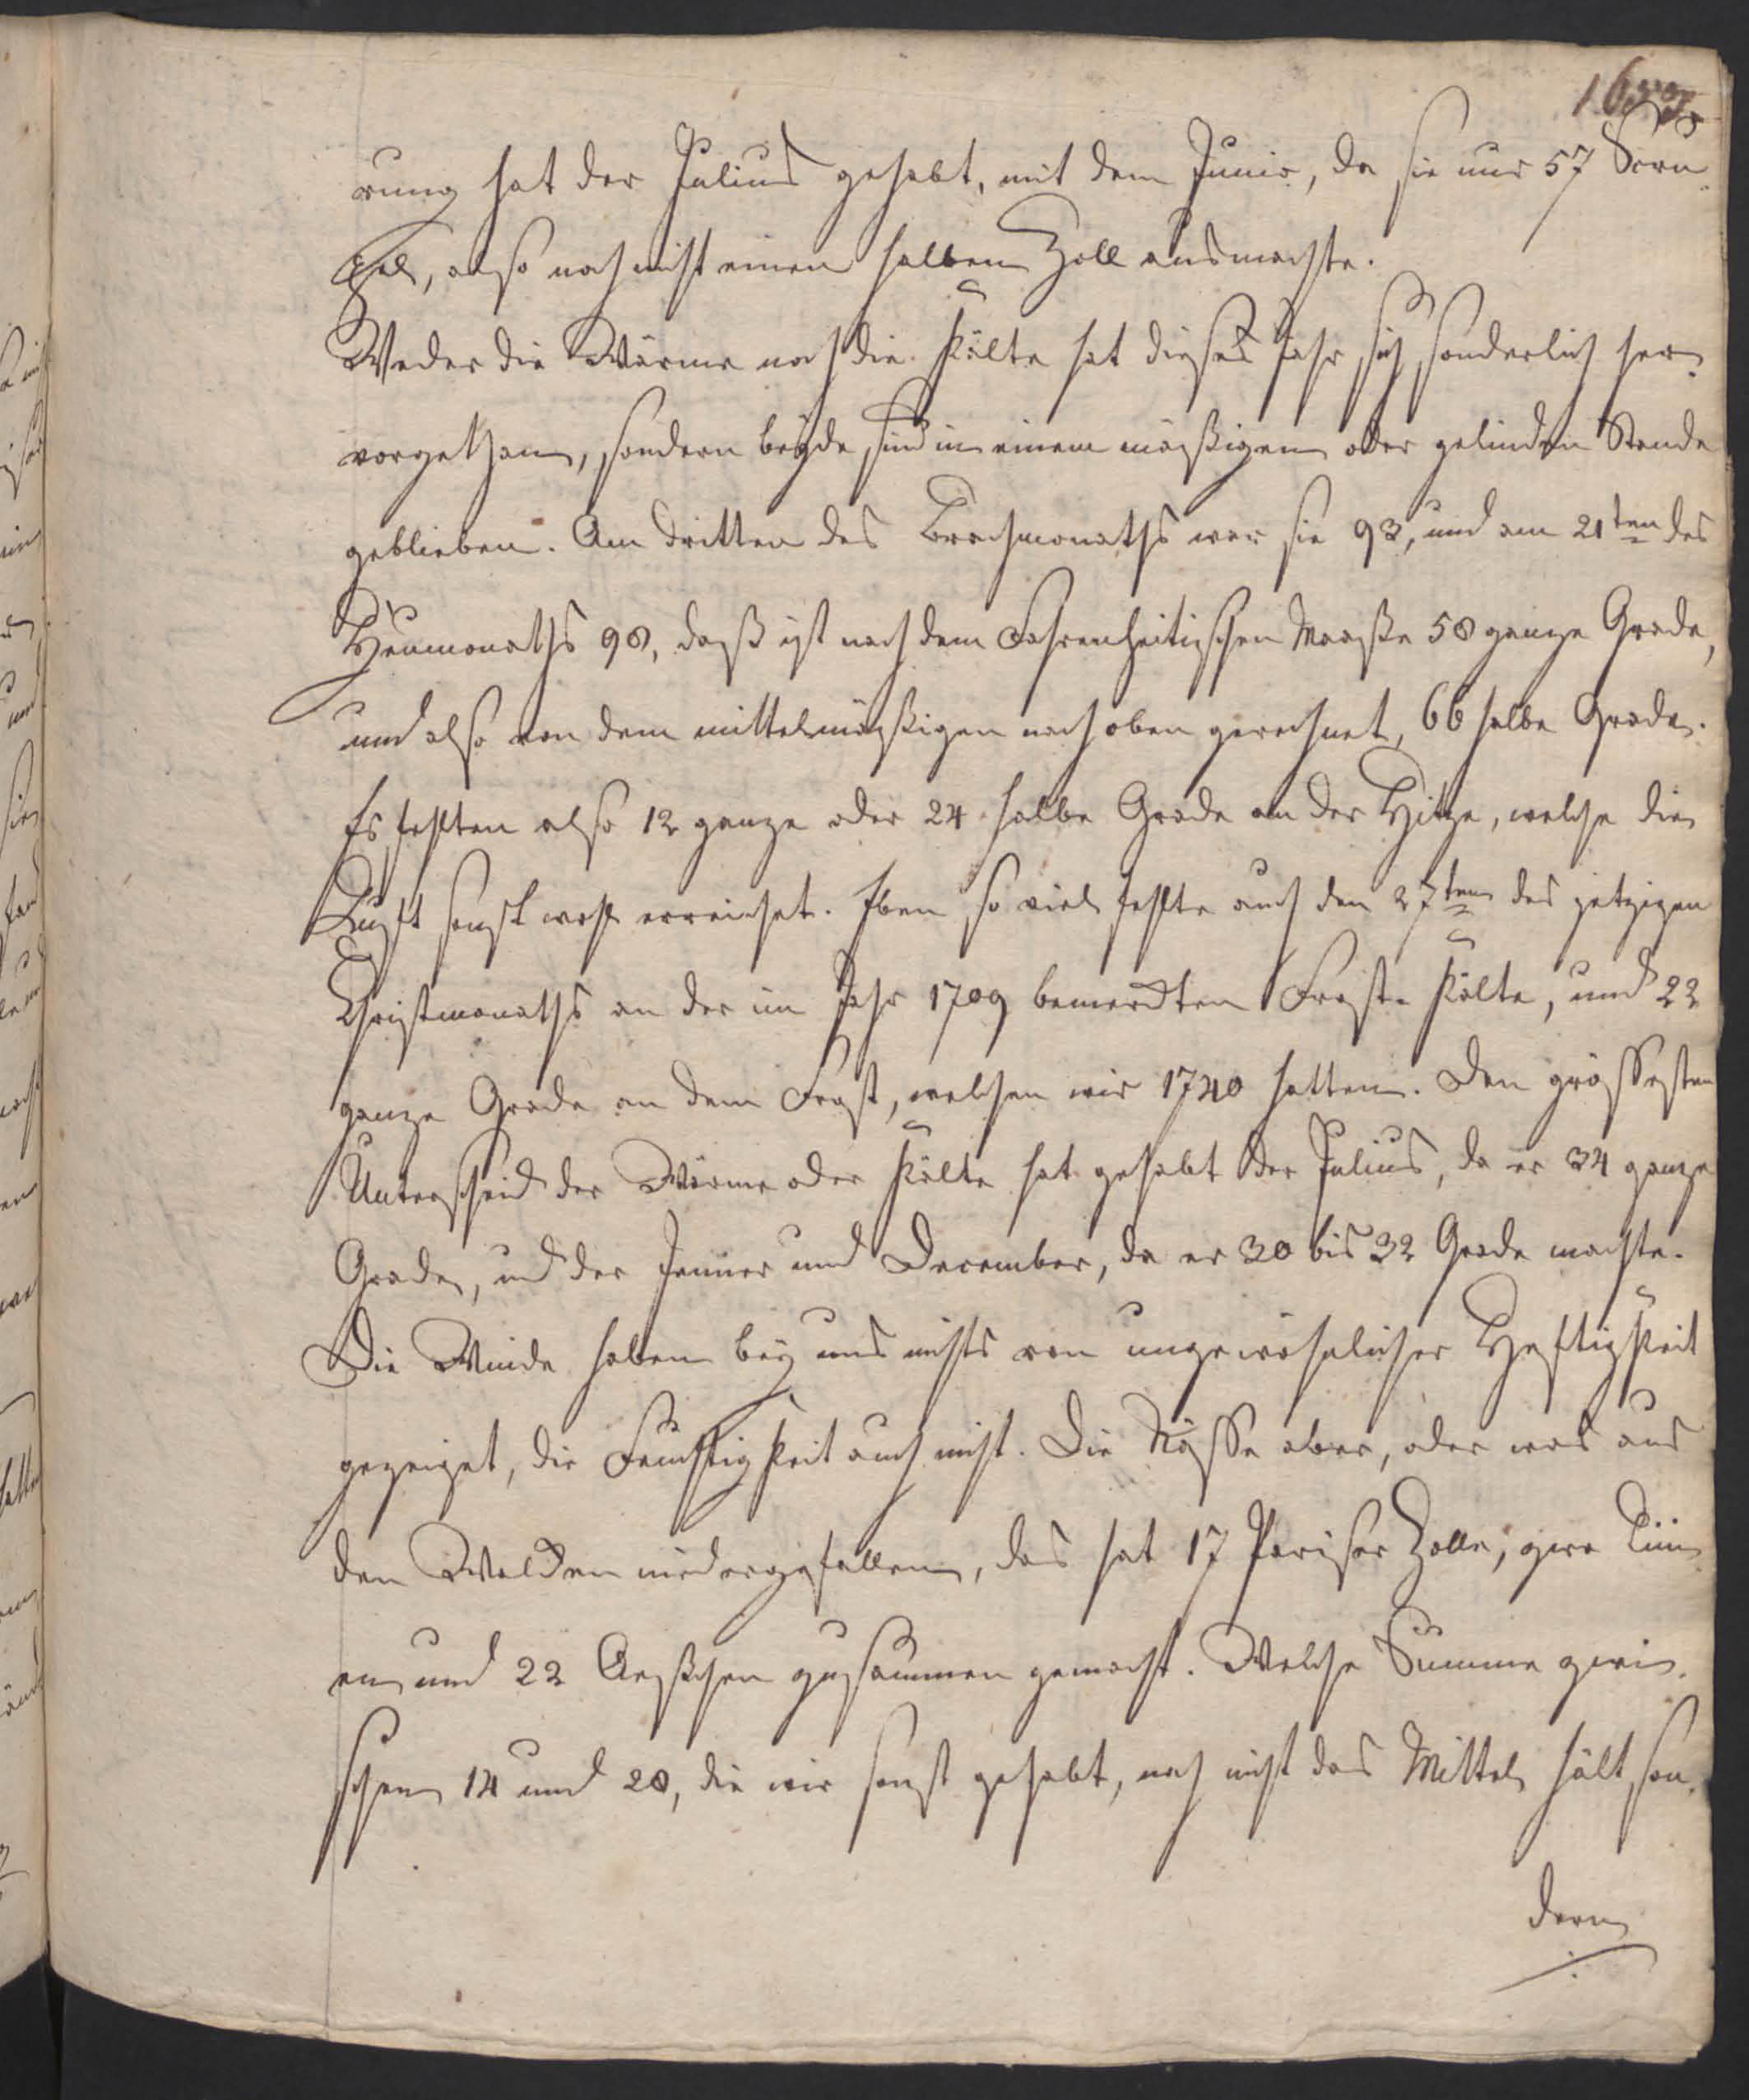 rung hat der Julius gehabt, mit dem Junio, da sie nur 57 Scru-
pel, also noch nicht einen halben Zoll ausmachte.
Weder die Wärme noch die Kälte hat dieses Jahr sich sonderlich her-
vorgethan, sondern beyde sind in einem mäßigen oder gelinden Stande
geblieben. Am dritten des Brachmonaths war sie 93, und am 21ten des
Heumonaths 98, daß ist nach dem Fahrenheitischen Maaße 58 ganze Grade,
und also von dem mittelmäßigen nach oben gerechnet, 66 halbe Grade.
Es fehlten also 12 ganze oder 24 halbe Grade an der Hitze, welche die
Luft sonst wohl erreichet. Eben so viel fehlte auch den 27ten des jetzigen
Christmonaths an der im Jahr 1709 bemerckten Frost-Kälte, und 22
ganze Grade an dem Frost, welchen wir 1740 hatten. Den grössesten
Unterscheid der Wärme oder Kälte hat gehabt der Julius, da er 34 ganze
Grade, und der Jenner und December, da er 30 bis 32 Grade machte.
Die Winde haben bey uns nichts von ungewöhnlicher Heftigkeit
gezeiget, die Feuchtigkeit auch nicht. Die Nässe aber, oder was aus
den Wolcken niedergefallen, das hat 17 Pariser Zolle, zwo Lini-
en und 22 zusammen gemacht. Welche Summe zwi-
schen 14 und 20, die wir sonst gehabt, noch nicht das Mittel hält, son-
dern